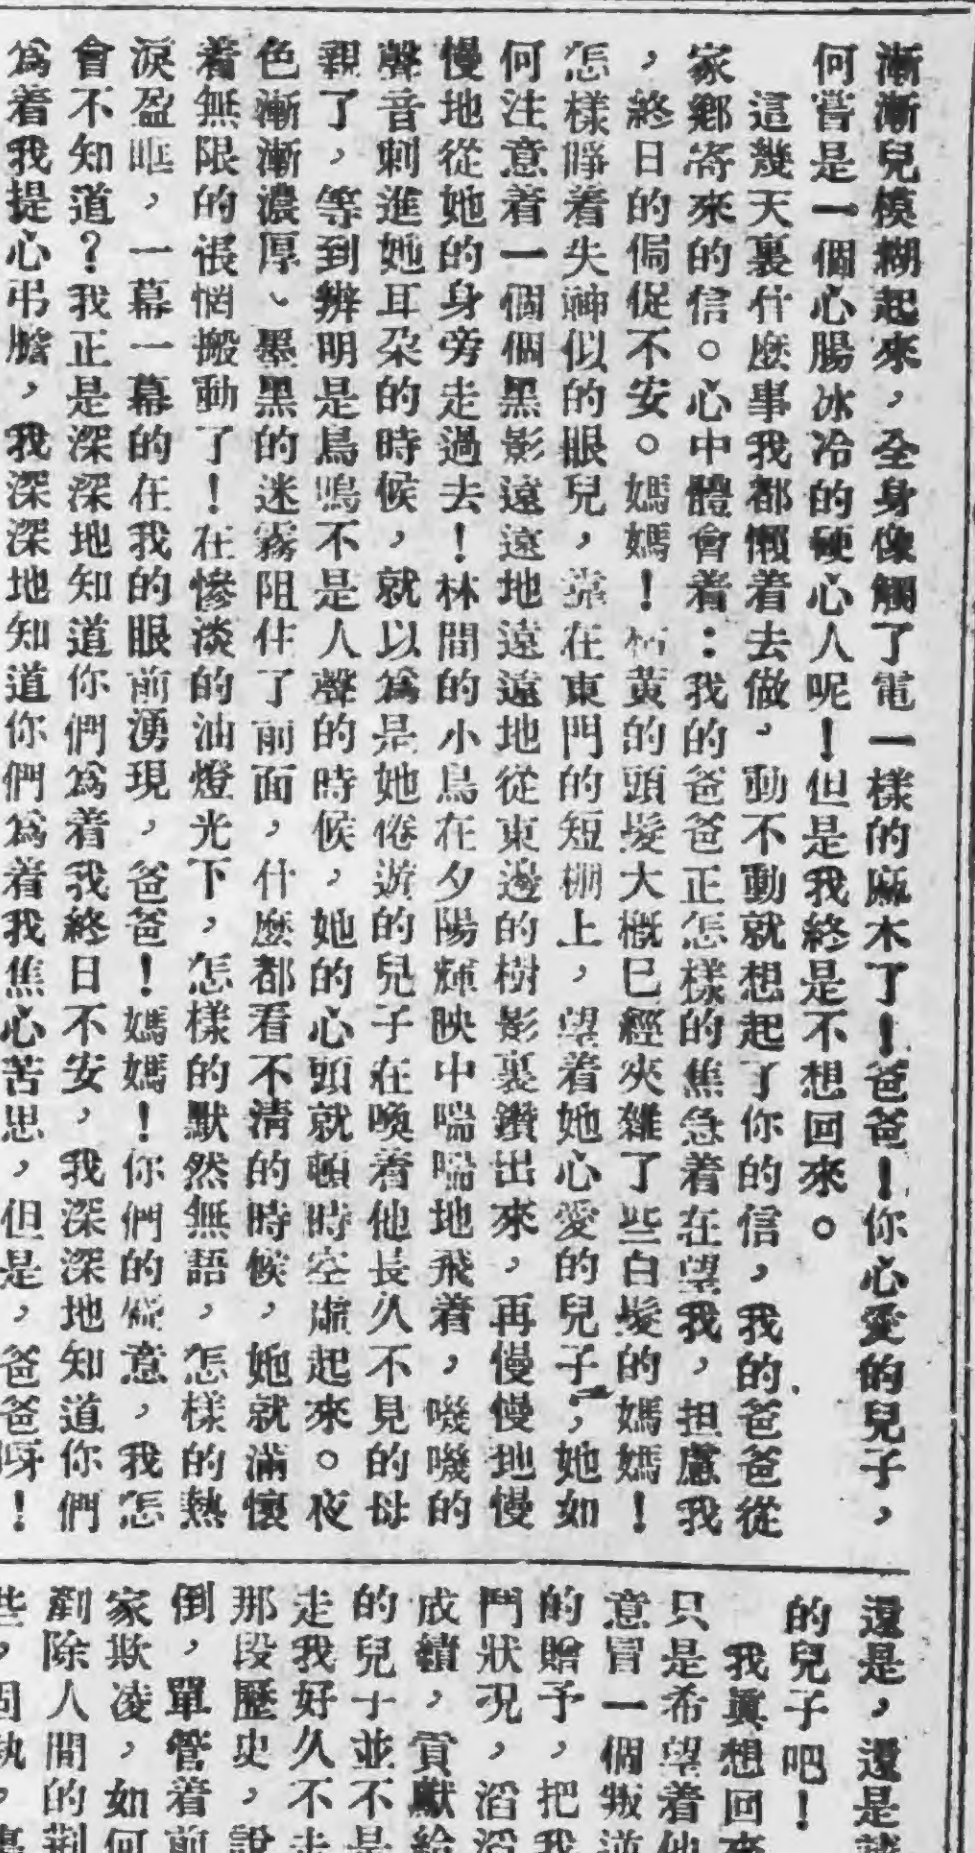 漸漸兒模糊起來，全身像觸了電一樣的麻木了！爸爸！你心愛的兒子，
何嘗是一個心腸冰冷的硬心人呢！但是我終是不想回來。
這幾天裏什麽事我都懶着去做，動不動就想起了你的信，我的爸爸從
家鄉寄來的信。心中體會着：我的爸爸正怎樣的焦急着在望我，担慮我
，終日的侷促不安。媽媽！枯黄的頭髮大概已經夾雜了些白髮的媽媽！
怎樣睜着失神似的眼兒，靠在東門的短棚上，望着她心愛的兒子，她如
何注意着一個個黑影遠遠地遠遠地從東邊的樹影裏鑽出來，再慢慢地慢
慢地從她的身旁走過去！林間的小鳥在夕陽輝映中喘喘地飛着，嘰嘰的
聲音刺進她耳朶的時候，就以爲是她倦遊的兒子在喚着他長久不見的母
親了，等到辨明是鳥鳴不是人聲的時候，她的心頭就頓時空虛起來。夜
色漸漸濃厚、墨黑的迷霧阻住了前面，什麽都看不淸的時候，她就滿懷
着無限的悵惘搬動了！在慘淡的油燈光下，怎樣的默然無語，怎樣的熱
淚盈眶，一幕一幕的在我的眼前湧現，爸爸！媽媽！你們的意，我怎
會不知道？我正是深深地知道你們爲着我終日不安，我深深地知道你們
爲着我提心弔膽，我深深地知道你們爲着我焦心苦思，但是，爸爸呀！
還是，還是
的兒子吧！
我眞想回來
只是希望着他
意冒一個叛逆
的贈予，把我
鬥狀况，滔滔
成績，貢獻給
的兒子並不是
走我好久不走
那段歷史，說
倒，單管着前
家欺凌，如何
剷除人間的荆
些，固執，